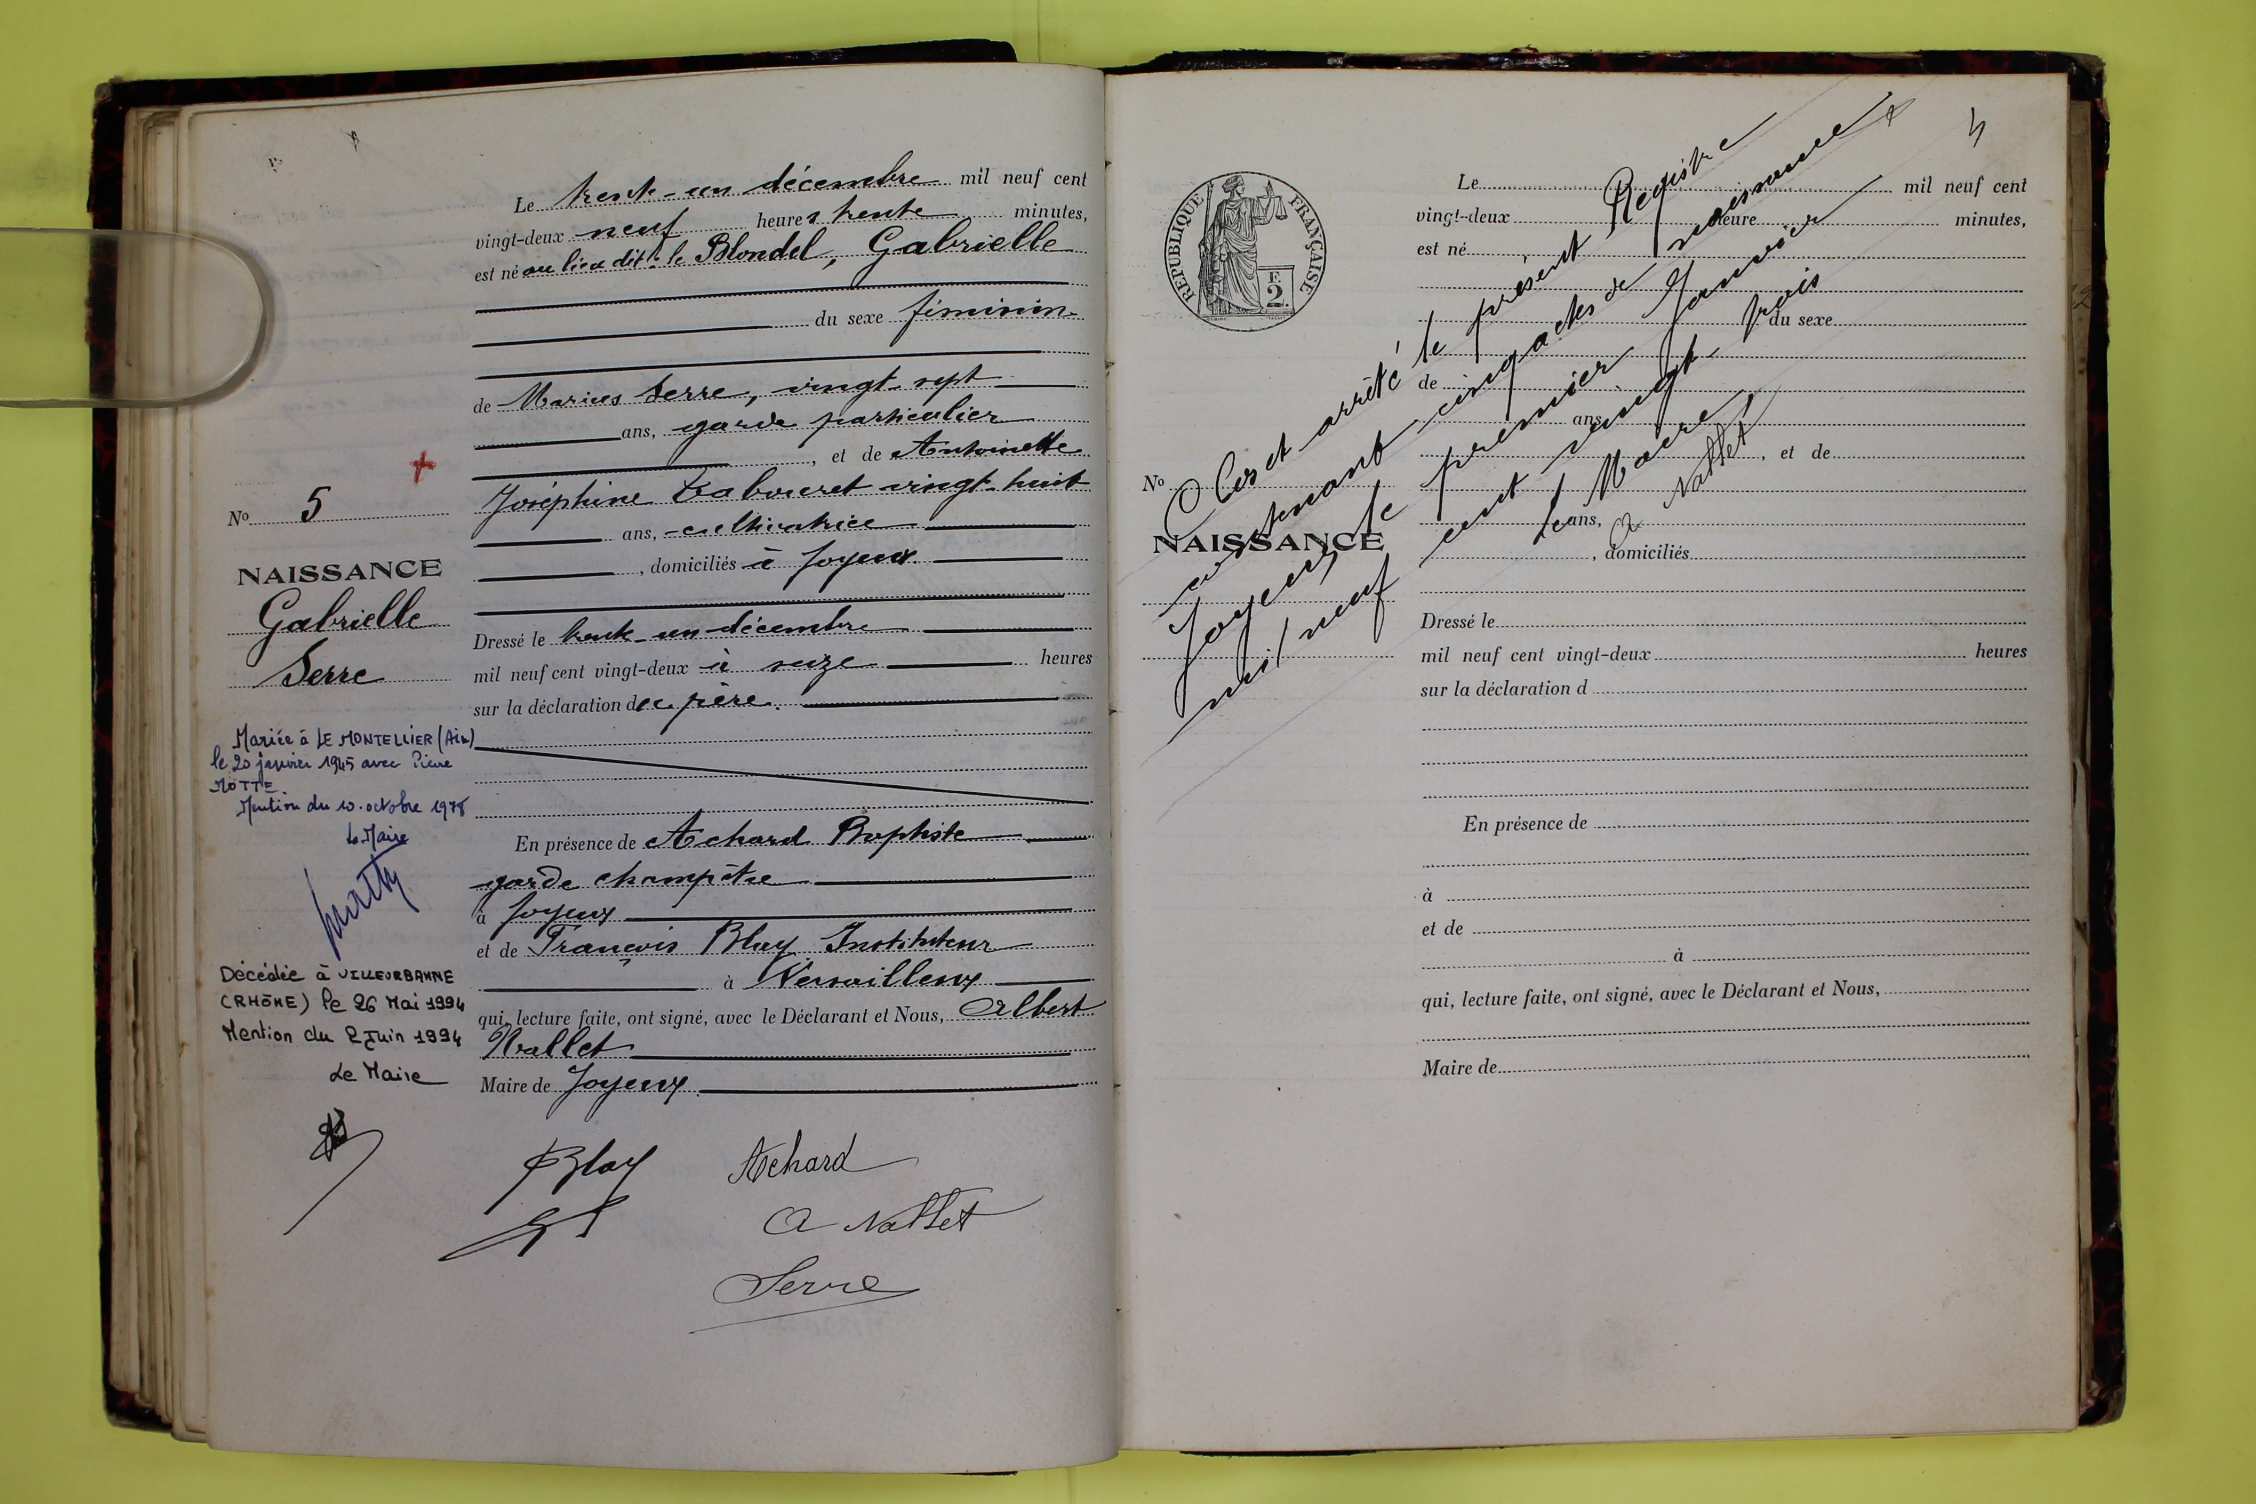 Le trente-un décembre mil neuf cent
vingt-deux neuf heures trente minutes,
est né au lieu dit: le Blondel, Gabrielle
du sexe féminin
de Marius Serre, vingt-sept
ans, garde particulier
, et de Antoinette
Joséphine Tabouret vingt-huit
ans, cultivatrice
, domiciliés à Joyeux
Dressé le trente-un décembre
mil neuf cent vingt-deux à seize heures
sur la déclaration du père.
En présence de Achard Baptiste
garde champêtre
à Joyeux
et de François Blay Instituteur
à Versailleux
qui, lecture faite, ont signé, avec le Déclarant et Nous, Albert
Nallet
Maire de Joyeux
Blay Achard
A Nallet
Serre
No 5
NAISSANCE
Gabrielle
Serre
Mariée à LE MONTELLIER (Ain)
le 20 janvier 1945 avec Pierre
MOTTE.
Mention du 10 octobre 1978
Le Maire
Décédée à VILLEURBANNE
(RHÔNE) le 26 Mai 1994
Mention du 2 Juin 1994
Le Maire
5
RÉPUBLIQUE FRANÇAISE
F.
2.
No
NAISSANCE
Le mil neuf cent
vingt-deux heure minutes,
est né
du sexe
de
ans
, et de
ans,
, domiciliés
Dressé le
mil neuf cent vingt-deux heures
sur la déclaration d
En présence de
à
et de
à
qui, lecture faite, ont signé, avec le Déclarant et Nous,
Maire de
Clos et arrêté le présent Registre
contenant cinq actes de naissance
Joyeux, le premier Janvier
mil neuf cent vingt-trois
Le Maire,
A Nallet